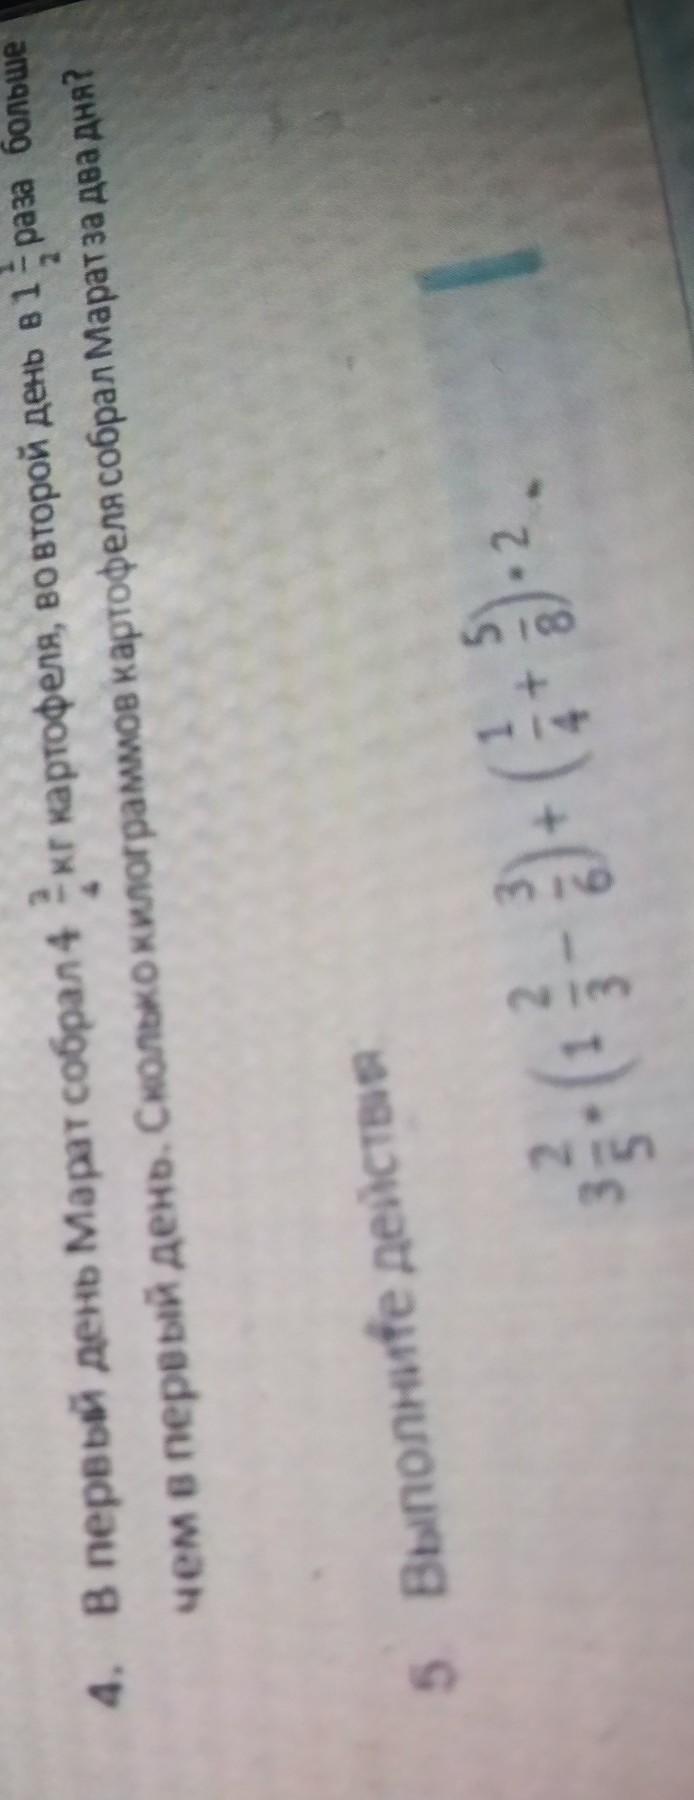 4. В первый день Марат собрал 4 3/4 кг картофеля, во второй день в 1 1/2 раза больше
чем в первый день. Сколько килограммов картофеля собрал Марат за два дня?
5 Выполните действия
3 2/5 • (1 2/3 − 3/6) + (1/4 + 5/8) • 2.